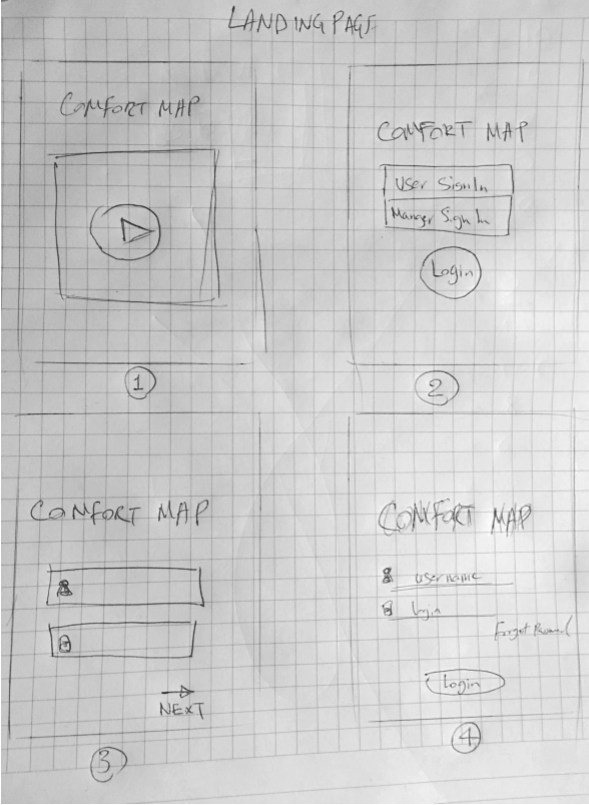 LANDING PAGE
COMFORT MAP
1
COMFORT MAP
User Sign In
Manger Sign In
Login
2
COMFORT MAP
NEXT
3
COMFORT MAP
username
login
Forgot
Login
4